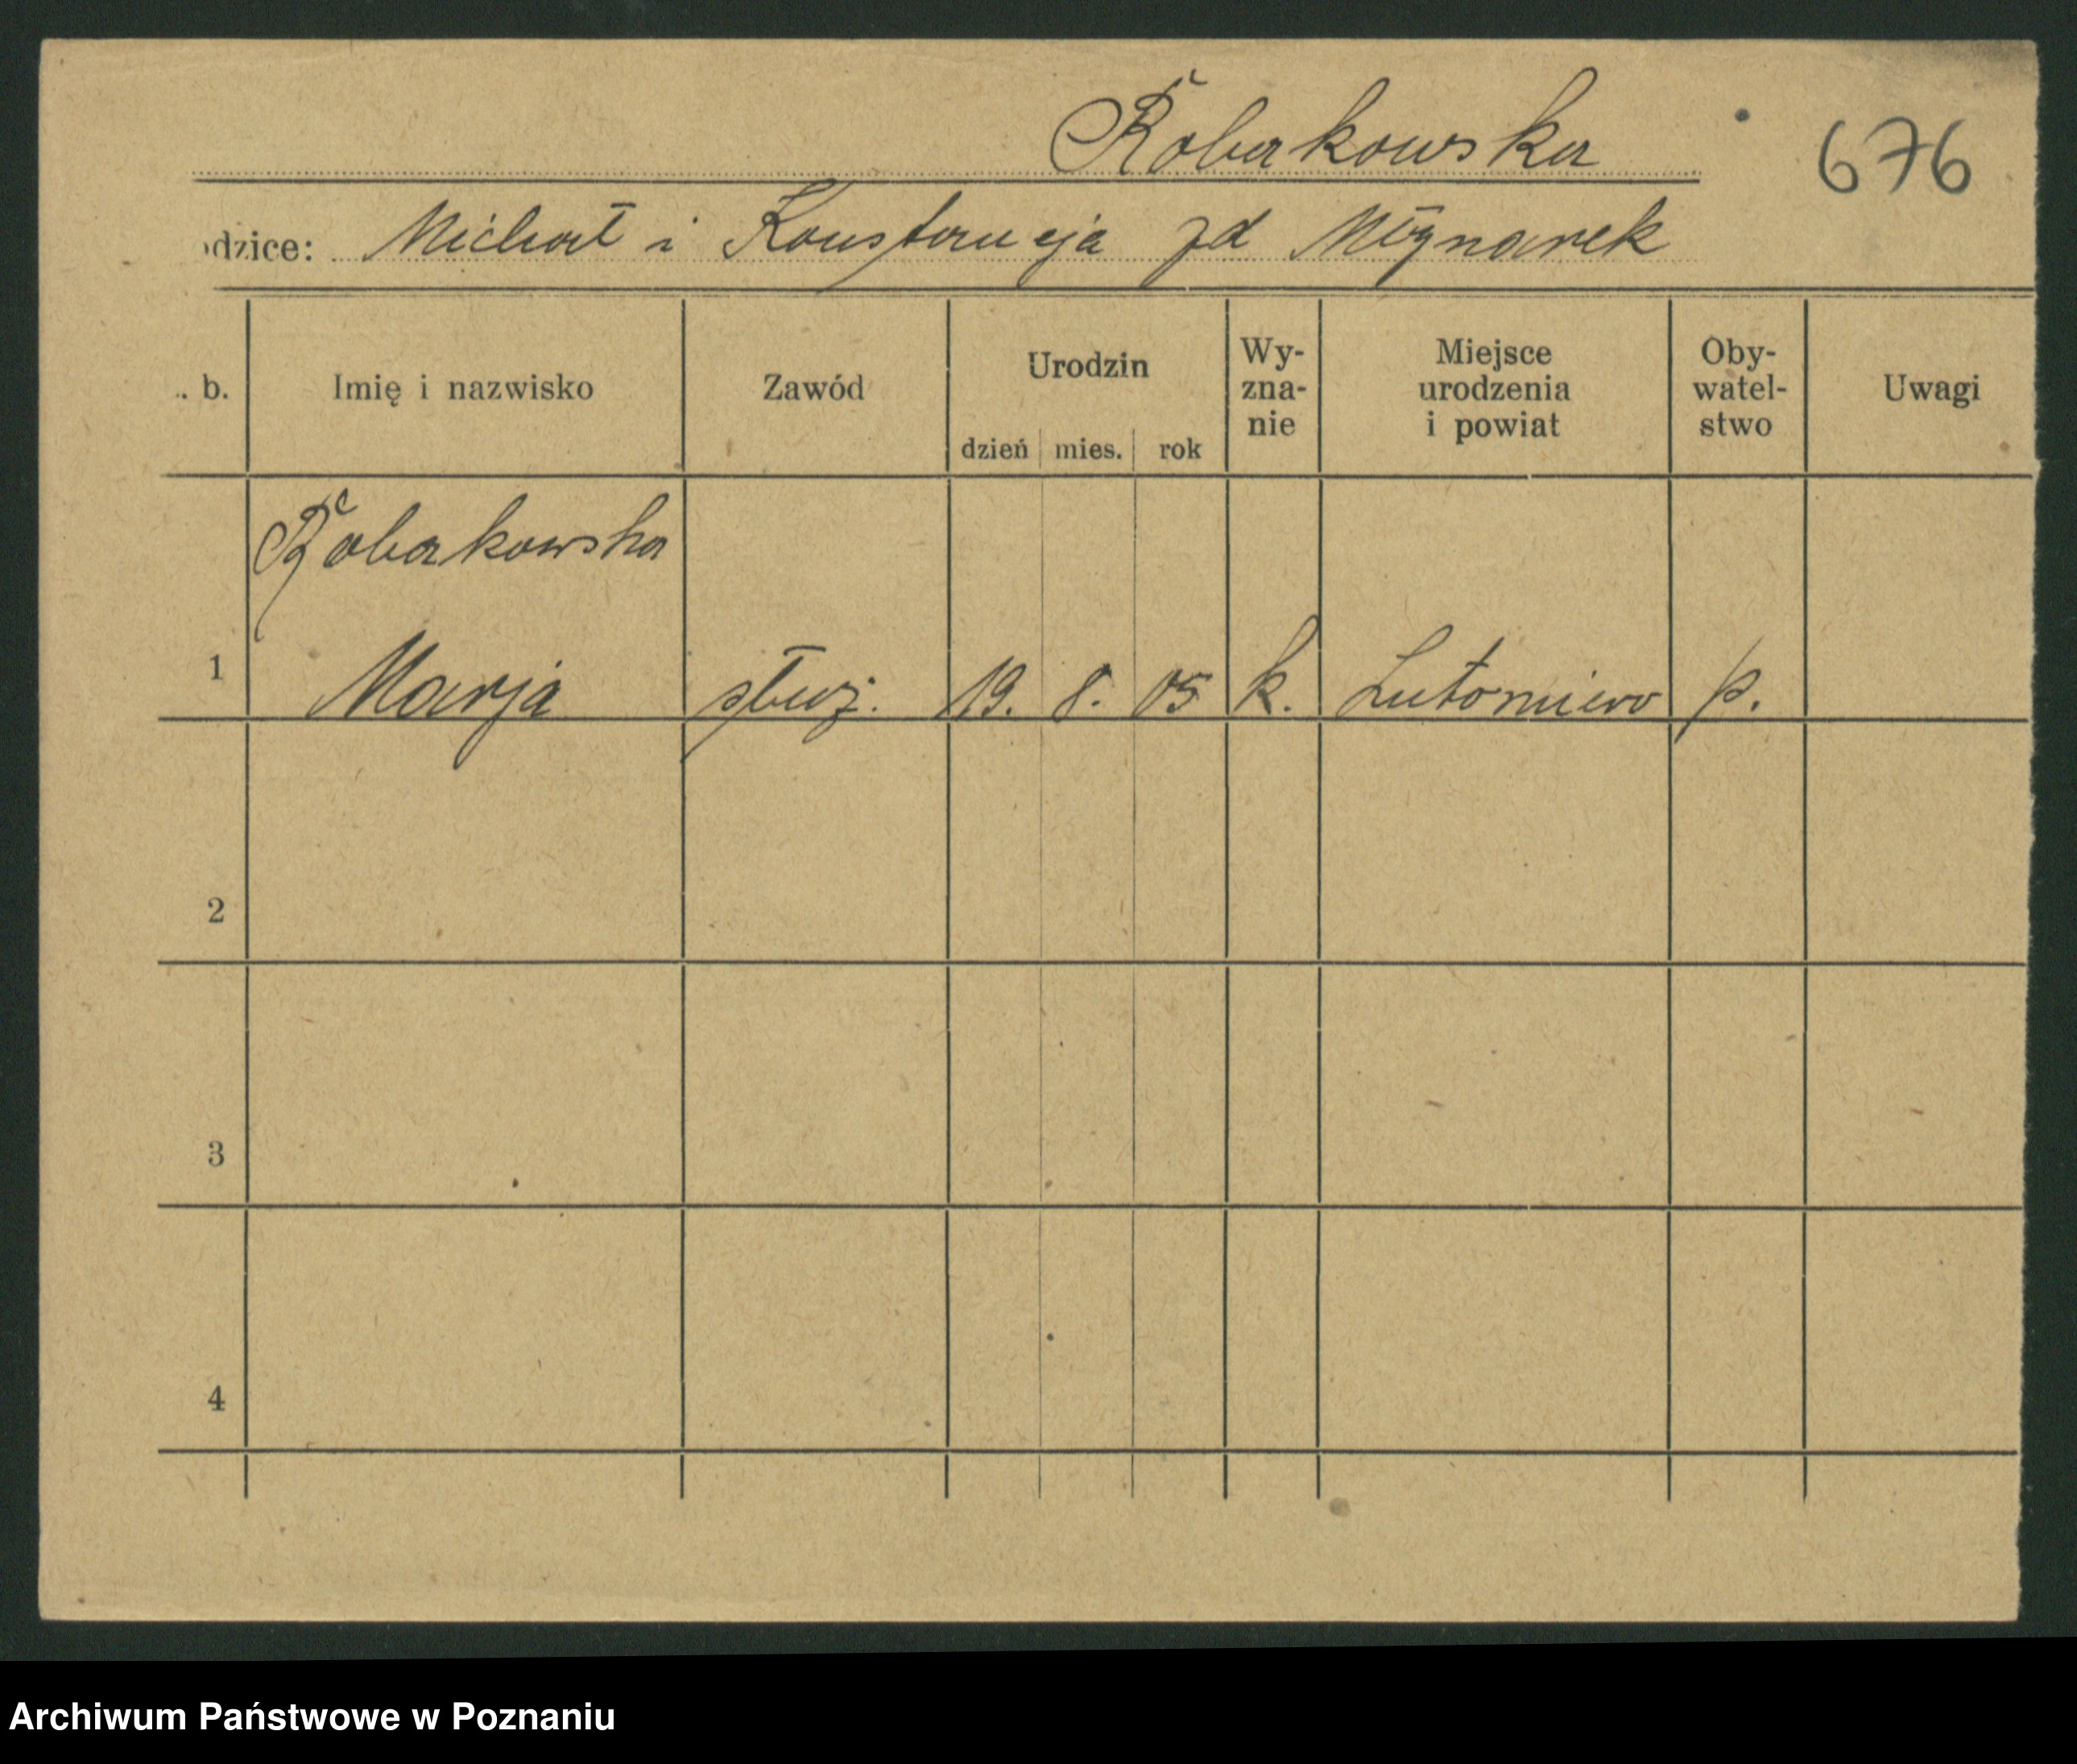 Robakowska
676
odzice: Michał i Konstancja zd Młynarek
. b.
Imię i nazwisko
Zawód
Urodzin
dzień mies. rok
Wy-
zna-
nie
Miejsce
urodzenia
i powiat
Oby-
watel-
stwo
Uwagi
Robakowska
1 Marja służ. 19. 8. 05 k. Lutomiewo p.
2
3
4
Archiwum Państwowe w Poznaniu